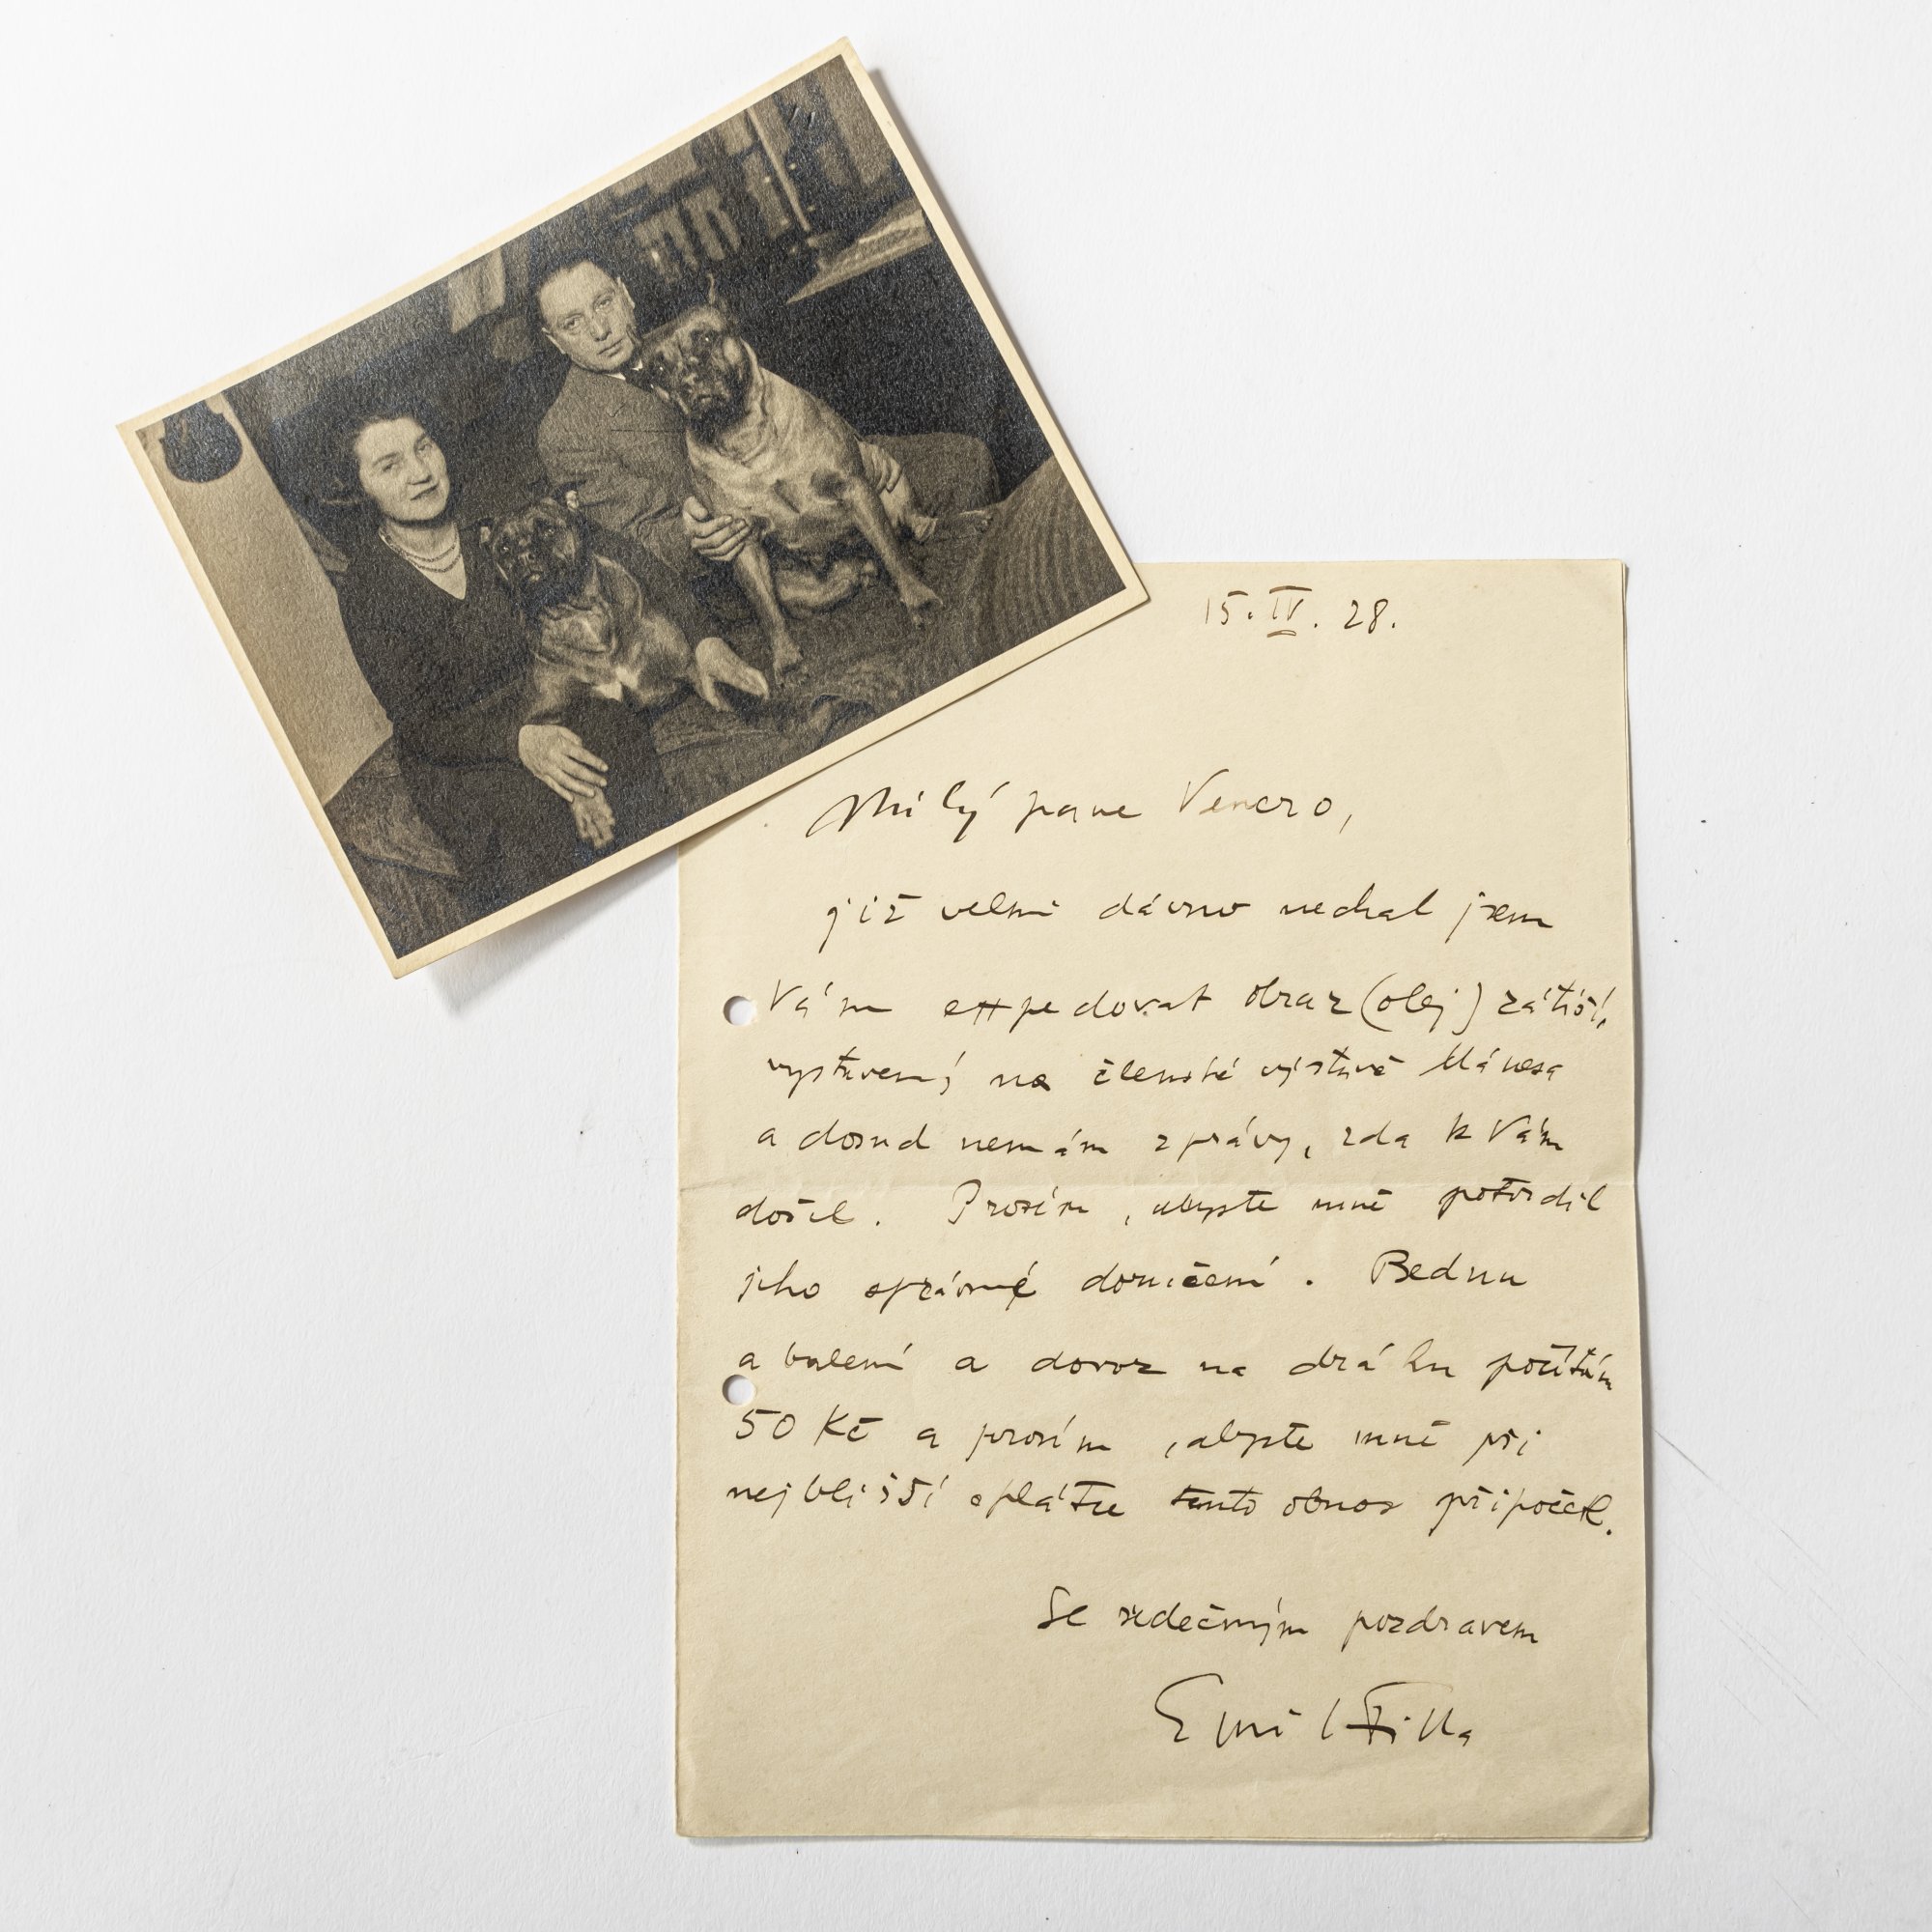 15. IV. 28.
Milý pane Venero,
již velmi dávno nechal jsem
Vám expedovat obraz (olej) zátiší,
vystavený na členské výstavě Mánesa
a dosud nemám zprávy, zda k Vám
došel. Prosím, abyste mně potvrdil
jeho správné doručení. Bednu
a balení a dovoz na dráhu počítám
50 Kč a prosím, abyste mně při
nejbližší splátce tento obnos připočetl.
Se srdečným pozdravem
Emil Filla